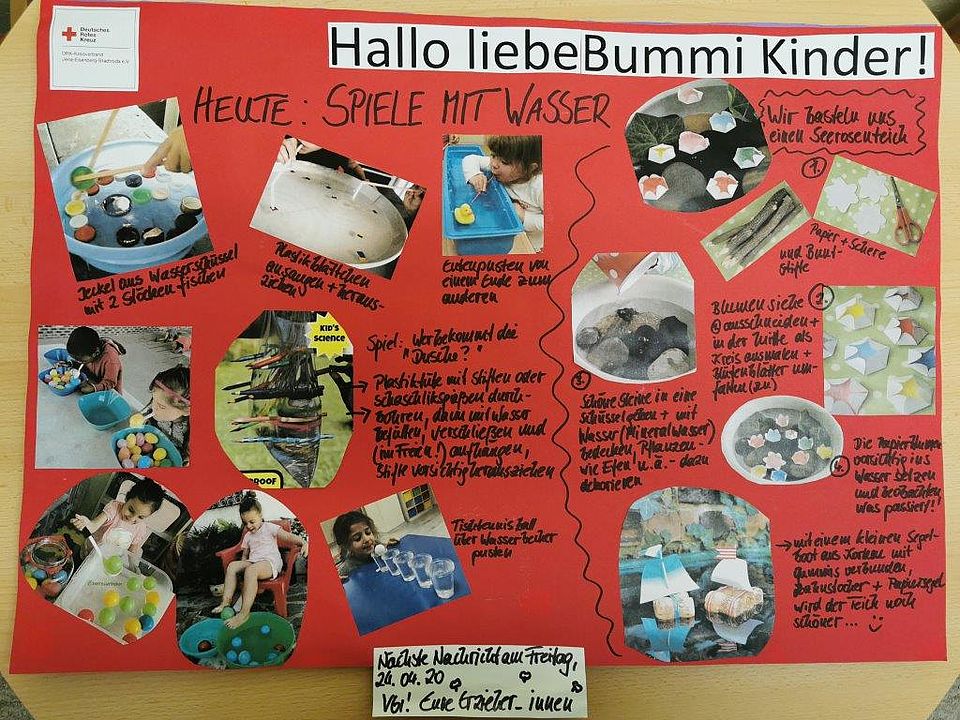 Deutsches
Rotes
Kreuz
DRK-Kreisverband
Jena-Eisenberg-Stadtroda e.V.
Hallo liebe Bummi Kinder!
HEUTE: SPIELE MIT WASSER
Deckel aus Wasserschüssel
mit 2 Stöcken fischen
Plastikblättchen
ansaugen + heraus-
ziehen
Entenpusten von
einem Ende zum
anderen
KID'S
SCIENCE
PROOF
Spiel: Wer bekommt die
"Dusche?"
→ Plastiktüte mit Stiften oder
Schaschlikspießen durch-
→ bohren, dann mit Wasser
befüllen, verschließen und
(im Freien!) aufhängen,
Stifte vorsichtig herausziehen
Tischtennisball
über Wasserbecher
pusten
Wir basteln uns
einen Seerosenteich
1.
Papier + Schere
und Bunt-
stifte
2.
Blumen siehe
ausschneiden +
in der Mitte als
Kreis ausmalen +
Blütenblätter um-
falten (zu)
3.
Schöne Steine in eine
Schüssel geben + mit
Wasser (Mineralwasser)
bedecken, Pflanzen -
wie Efeu u.ä. - dazu
dekorieren
4.
Die Papierblumen
vorsichtig ins
Wasser setzen
und beobachten,
was passiert!
→ mit einem kleinen Segel-
boot aus Korken mit
Gummis verbunden,
Zahnstocher + Papiersegel
wird der Teich noch
schöner...
Nächste Nachricht am Freitag,
24.04.20
VG! Eure Erzieher_innen